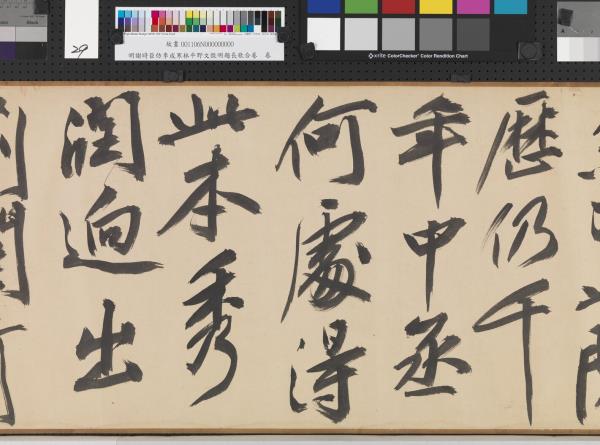 Black
29
故畫 001106N000000000
明謝時臣仿李成寒林平野文徵明題長歌合卷 卷
x-rite ColorChecker Color Rendition Chart
歷仍千
年中丞
何處得
此本秀
潤迥出